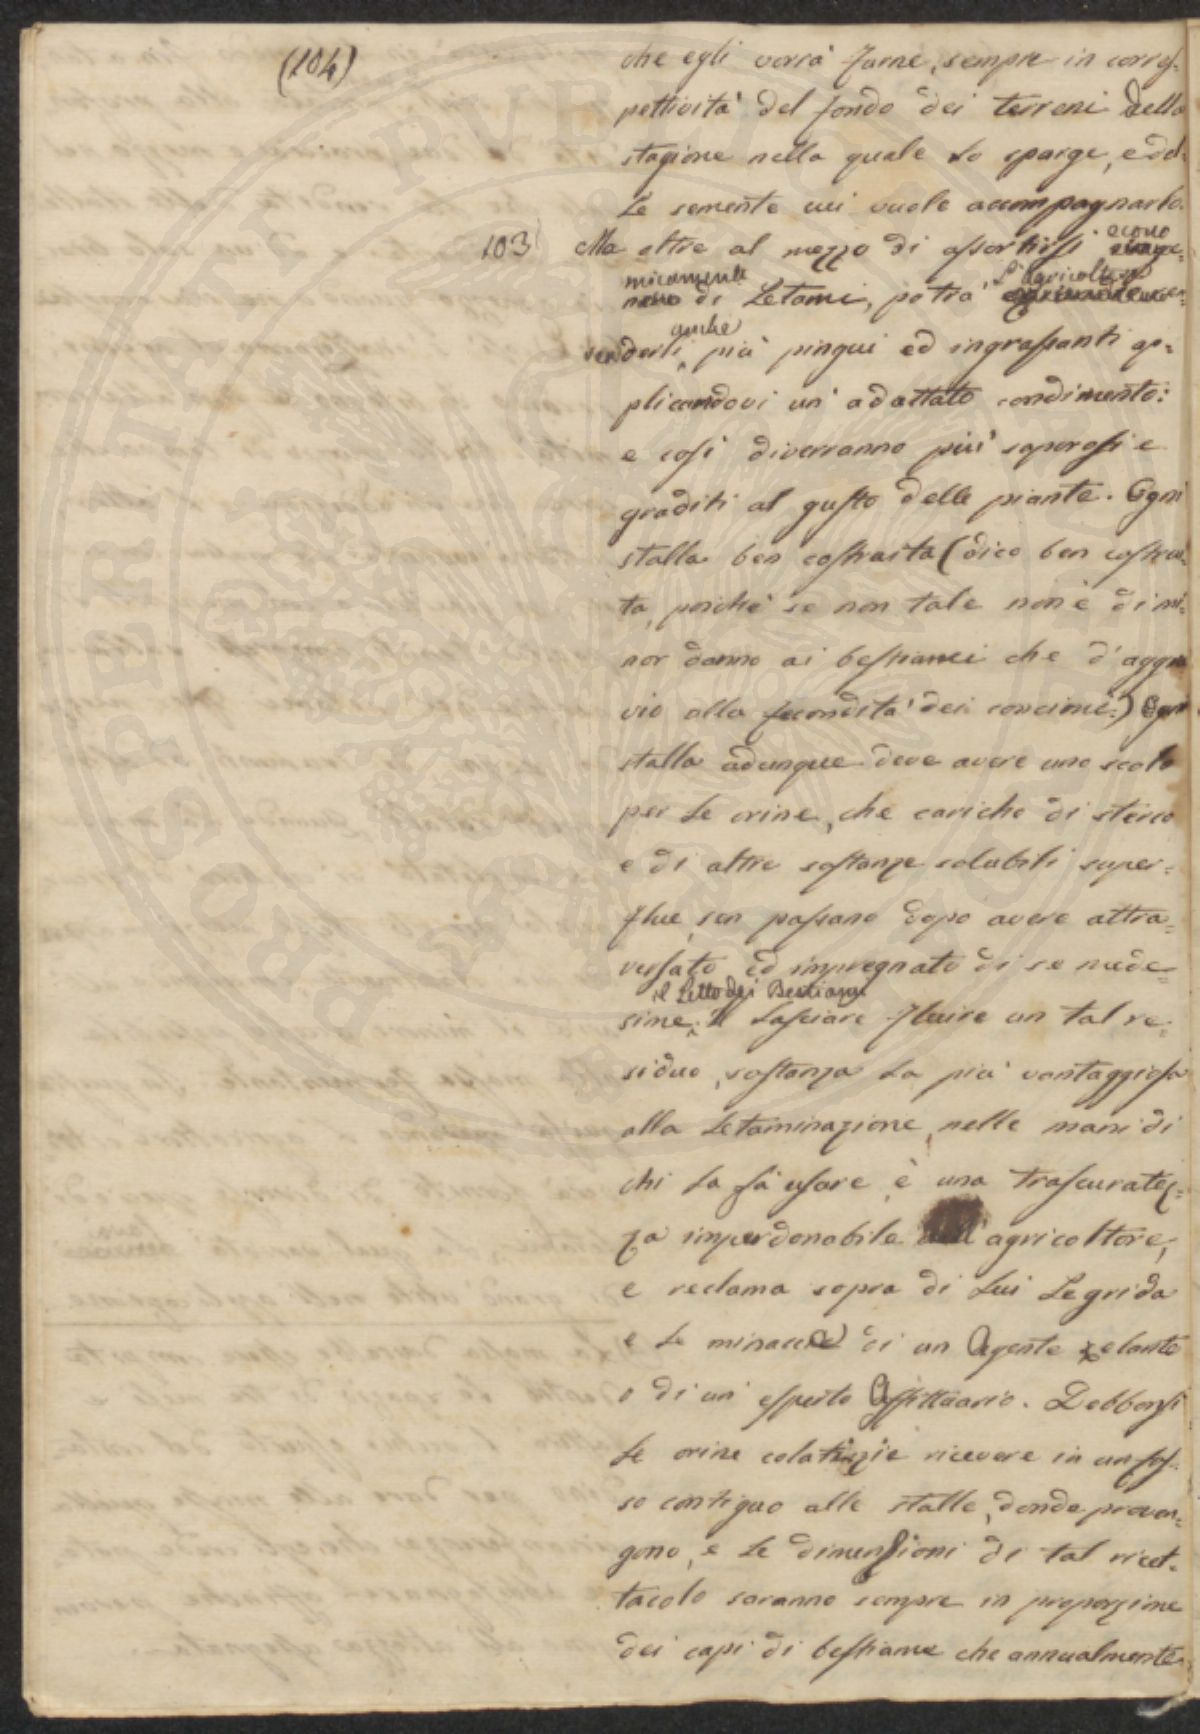 (104)
che egli vorrà farne, sempre in corres-
pettività del fondo dei terreni della
stagione nella quale lo sparge, e del-
le semente cui vuole accompagnarlo.
103 Ma oltre al mezzo di assortirsi econo
micamente di Letami, potrà l'agricoltore
renderli anche più pingui ed ingrassanti ap-
plicandovi un' adattato condimento:
e così diverranno più saporosi e
graditi al gusto delle piante. Ogni
stalla ben costruita (dico ben costrui-
ta, poichè se non tale non è di mi-
nor danno ai bestiami che d'aggra
vio alla fecondità dei concimi:) Ogni
stalla adunque deve avere uno scolo
per le orine, che cariche di sterco
e di altre sostanze solubili super-
flue, sen passano dopo avere attra-
versato ed impregnato di se mede-
il Letto dei Bestiami
sime. Il lasciare fluire un tal re-
siduo, sostanza la più vantaggiosa
alla Letaminazione, nelle mani di
chi la sà usare, è una trascuratez-
za imperdonabile all' agricoltore,
e reclama sopra di Lui Le grida
e Le minacce di un Agente zelante
o di un' esperto Affittuario. Debbonsi
le orine colatizie ricevere in un fos-
so contiguo alle stalle, donde proven-
gono, e le dimensioni di tal ricet-
tacolo saranno sempre in proporzione
dei capi di bestiame che annualmente
PROSPERITATI PVBLICAE